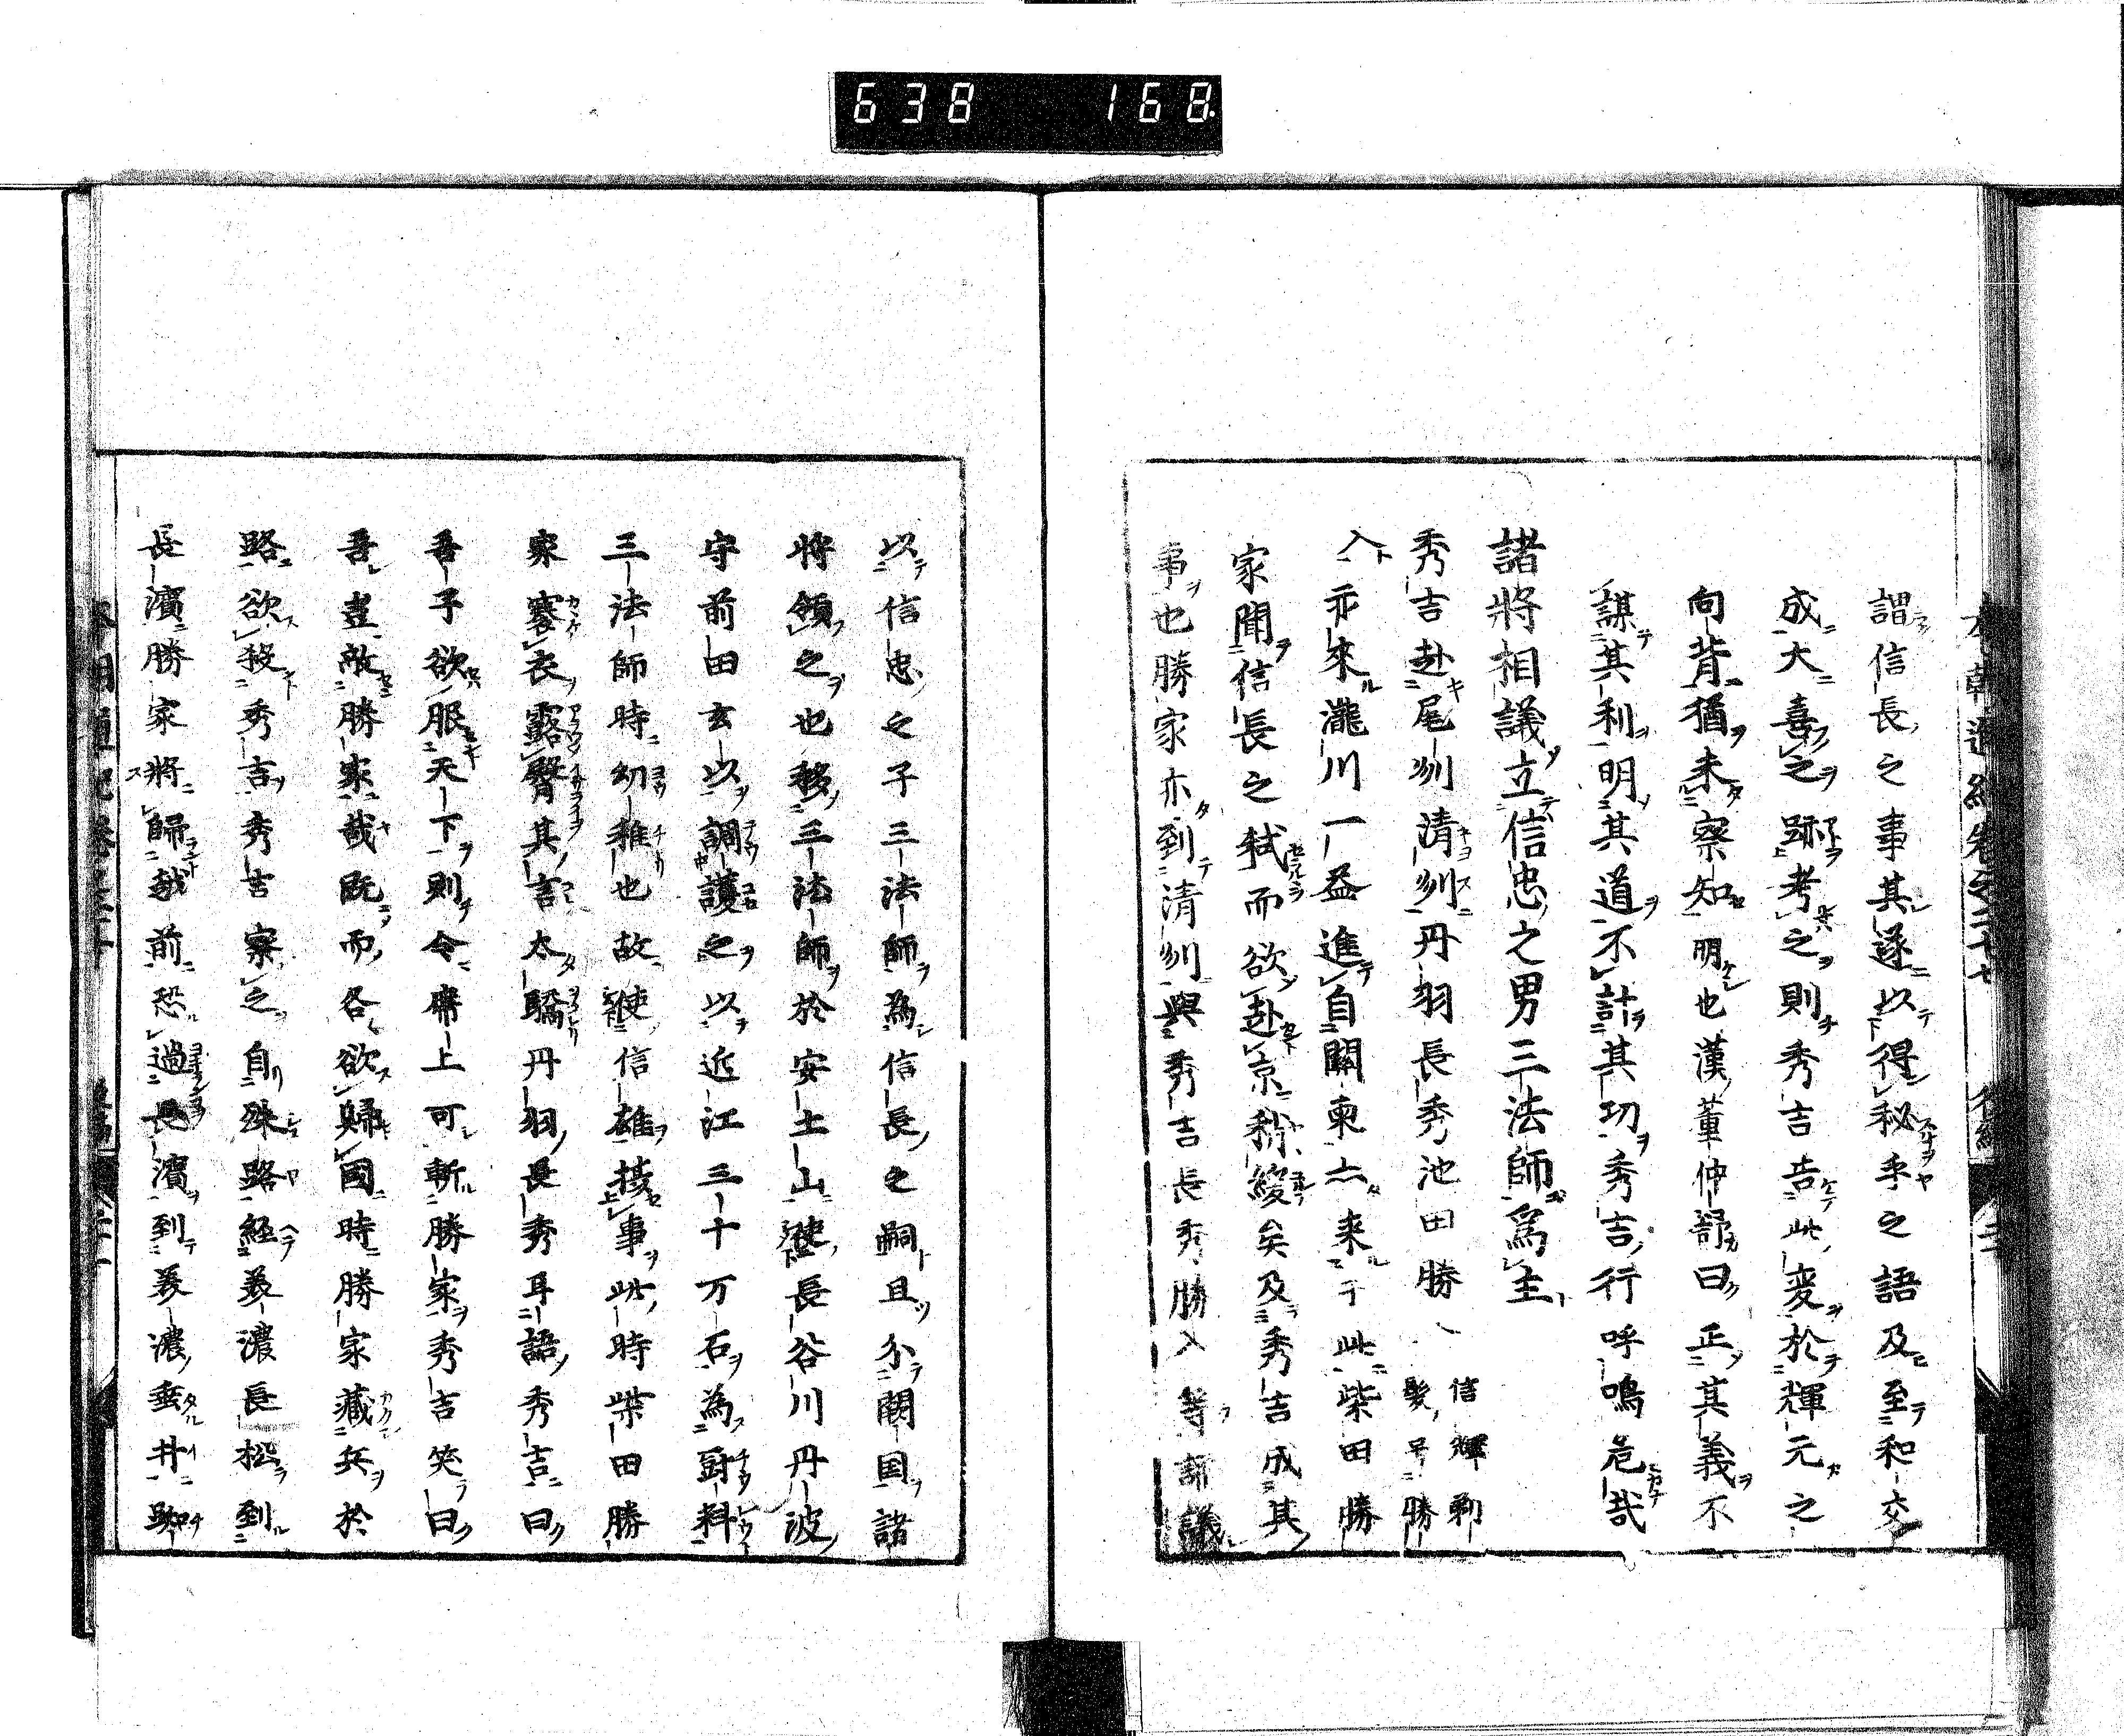 638 168
謂信長之事其遂以得秘乎之語及至和交
成大喜之跡考之則秀吉告此変於輝元之
向背猶未察知明也漢董仲舒曰正其義不
謀其利明其道不計其功秀吉行呼嗚危哉
諸將相議立信忠之男三法師爲主
秀吉赴尾州清列丹羽長秀池田勝
信輝剃
髪号勝
入亦來瀧川一益進自關東亦来于此柴田勝
家聞信長之弑而欲赴京稍緩矣及秀吉成其
事也勝家亦到清列與秀吉長秀勝入等評議
以信忠之子三法師為信長之嗣且分闕国諸
将領之也移三法師於安土山使長谷川丹波
守前田玄以調護之以近江三十万石為厨料
三法師時幼稚也故使信雄攝事此時柴田勝
家褰衣露臀其言太驕丹羽長秀耳語秀吉曰
吾子欲服天下則令席上可斬勝家秀吉笑曰
吾豈敵勝家哉既而各欲歸國時勝家藏兵於
路欲殺秀吉秀吉察之自殊路経美濃長松到
長濱勝家將歸越前恐過長濱到美濃垂井